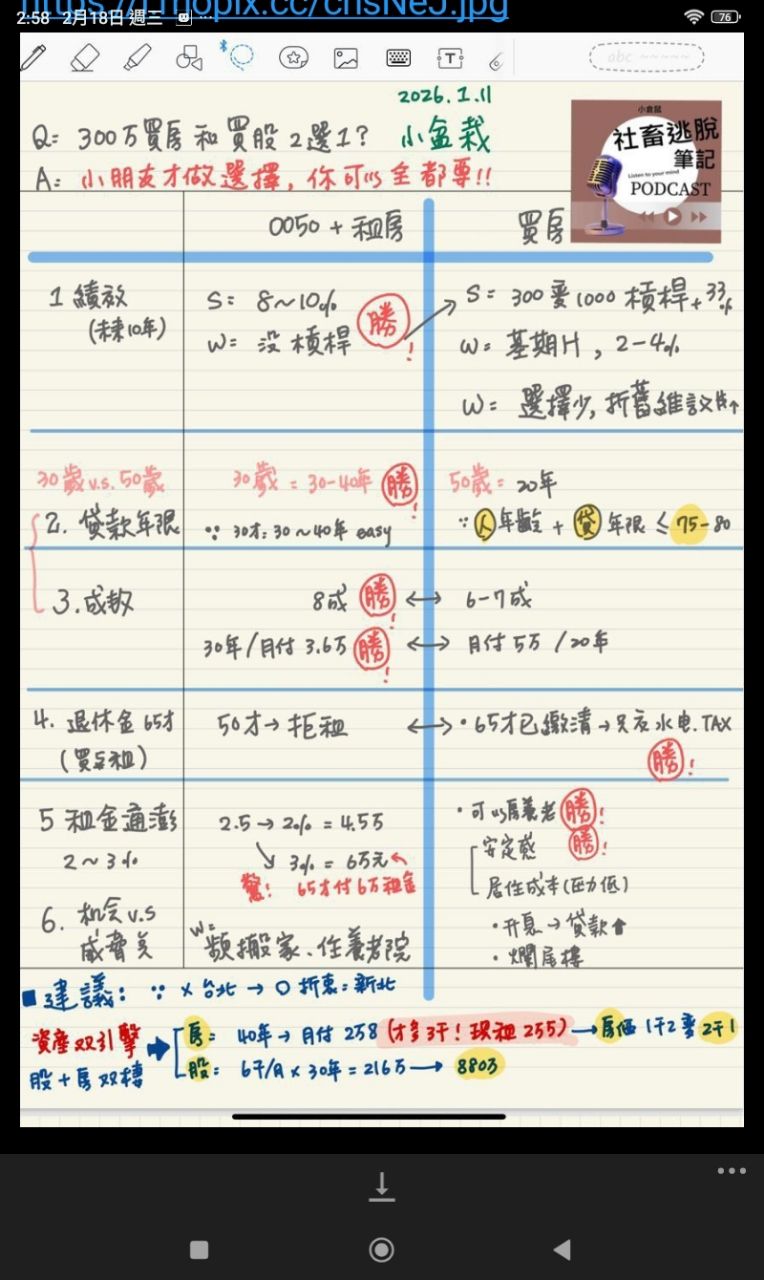 2:58 2月18日 週三
76
abc
2026.1.11
Q= 300万買房和買股2選1?
小盆栽
A: 小朋友才做選擇,你可以全都要!!
小倉鼠
社畜逃脫
筆記
Listen to your mind
PODCAST
0050 + 租房
買房
1 績效
(未來10年)
S= 8~10%
W= 没槓桿
勝!
S= 300變1000 槓桿+33%
W= 基期片, 2-4%
W= 選擇少,折舊維設找↑
30歲 v.s. 50歲
30歲 = 30-40年 勝!
50歲= 20年
2. 貸款年限
∵ 30才: 30~40年 easy
∵ 人年齡 + 貸年限 ≤ 75-80
3. 成數
8成 勝! ↔ 6-7成
30年/月付 3.6万 勝! ↔ 月付5万 /20年
4. 退休金 65才
(買与租)
50才→拒租 ↔ ・65才已繳清→只友水电.TAX
勝!
5 租金通澎
2~3%
2.5→2% = 4.5万
↘ 3% = 6万元
驚! 65才付6万租金
・可以房養老 勝!
安定感 勝!
居住成本(压力低)
6. 机会 v.s
威脅
W=
頻搬家、住養老院
・升息→貸款↑
・爛尾樓
■建議: ∵ ×台北 → ○ 折衷=新北
資産双引擎
股+房双棲
房: 40年→月付 258 (才多3千! 現租 255) →房価 1千2 變 2千1
股: 6千/月×30年=216万→ 8803